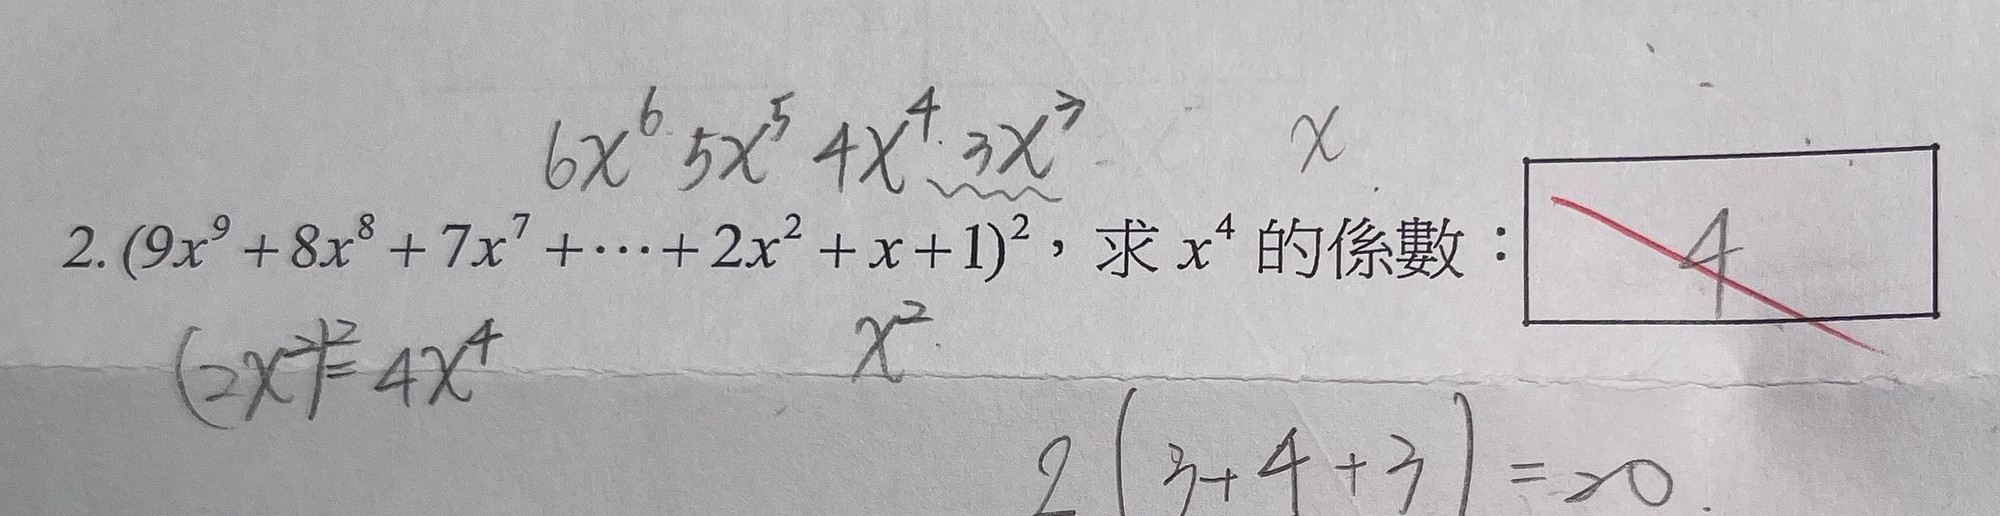 6x⁶ 5x⁵ 4x⁴ 3x³ x
2. (9x⁹ + 8x⁸ + 7x⁷ + ⋯ + 2x² + x + 1)²，求 x⁴ 的係數： 4
(2x²)² = 4x⁴ x²
2(3+4+3) = 20